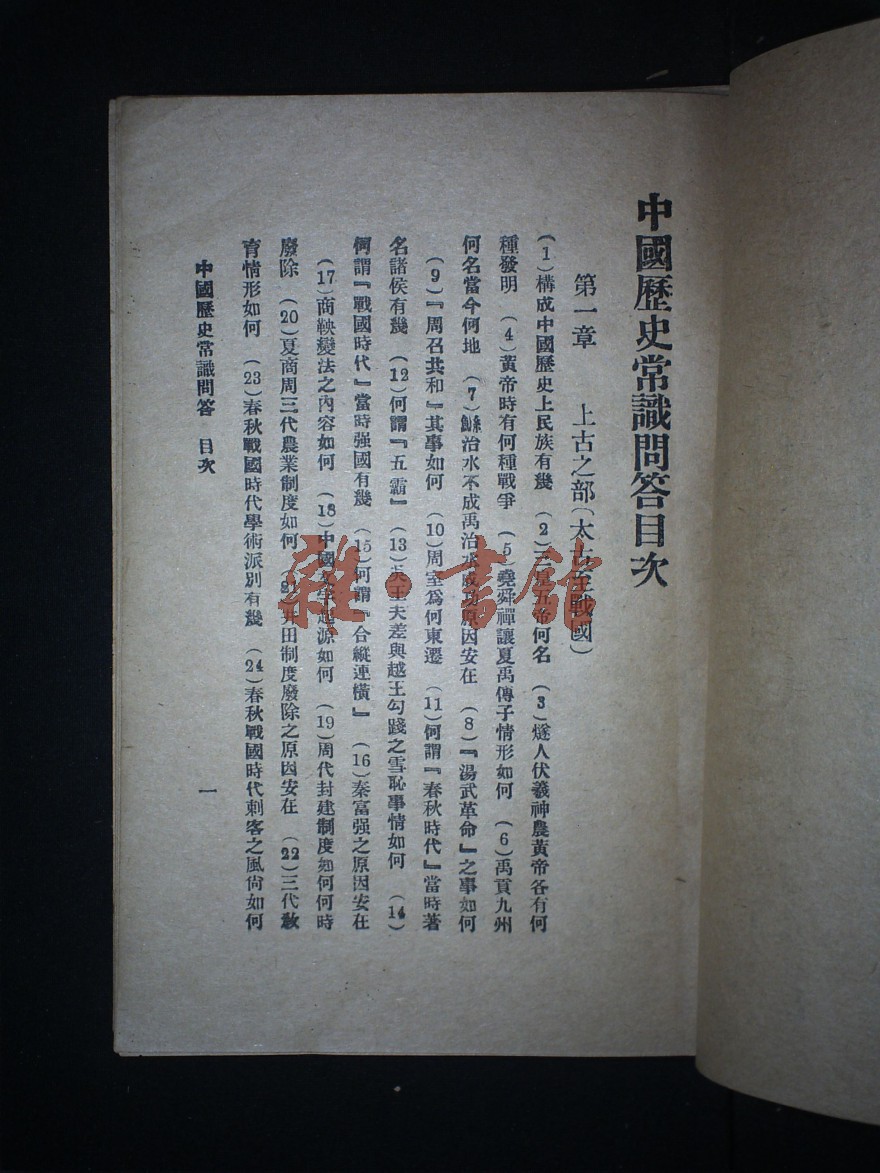 中國歷史常識問答目次
第一章 上古之部(太古至戰國)
(1)構成中國歷史上民族有幾 (2)三皇五帝何名 (3)燧人伏羲神農黃帝各有何
種發明 (4)黃帝時有何種戰爭 (5)堯舜禪讓夏禹傳子情形如何 (6)禹貢九州
何名當今何地 (7)鯀治水不成禹治水成功原因安在 (8)『湯武革命』之事如何
(9)『周召共和』其事如何 (10)周室爲何東遷 (11)何謂『春秋時代』當時著
名諸侯有幾 (12)何謂『五霸』 (13)吳王夫差與越王勾踐之雪恥事情如何 (14)
何謂『戰國時代』當時強國有幾 (15)何謂『合縱連橫』 (16)秦富强之原因安在
(17)商鞅變法之內容如何 (18)中國文字起源如何 (19)周代封建制度如何何時
廢除 (20)夏商周三代農業制度如何 (21)井田制度廢除之原因安在 (22)三代敎
育情形如何 (23)春秋戰國時代學術派別有幾 (24)春秋戰國時代刺客之風尙如何
中國歷史常識問答 目次
一
雜·書館